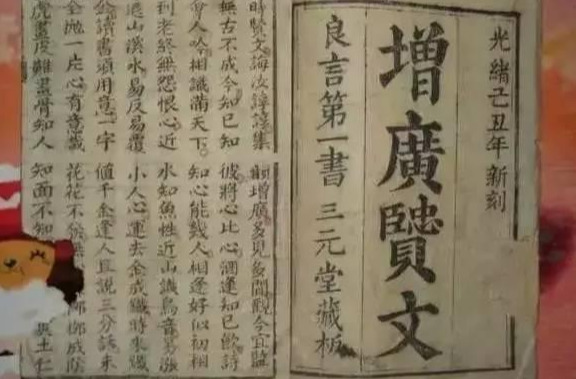 光緒己丑年新刻
增廣贒文
良言第一書 三元堂藏板
時賢文誨汝諄諄集韻增廣多見多聞觀今宜監
無古不成今知已知彼將心比心酒逢知已飲詩
會人吟相識滿天下知心能幾人相逢好似初相
到老終無怨恨心近水知魚性近山識鳥音易漲
退山溪水易反易覆小人心運去金成鐵時來鐵
金讀書須用意一字值千金逢人且說三分話未
全拋一片心有意栽花花不發無 柳柳成陰
虎畫皮難畫骨知人知面不知 土仁